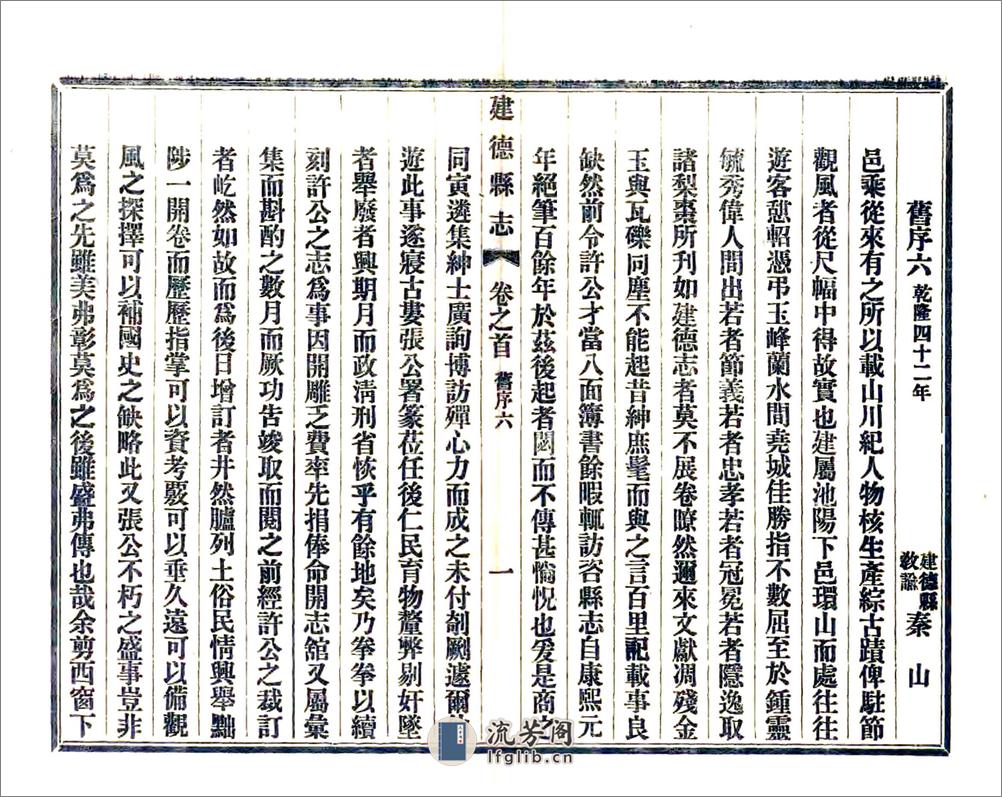 舊序六 乾隆四十二年 建德縣教諭 秦山
邑乘從來有之所以載山川紀人物核生產綜古蹟俾駐節
觀風者從尺幅中得故實也建屬池陽下邑環山而處往往
遊客憇軺憑弔玉峰蘭水間堯城佳勝指不數屈至於鍾靈
毓秀偉人間出若者節義若者忠孝若者冠冕若者隱逸取
諸梨棗所刊如建德志者莫不展卷瞭然邇來文獻凋殘金
玉與瓦礫同塵不能起昔紳庶髦而與之言百里記載事良
缺然前令許公才當八面簿書餘暇輒訪咨縣志自康熙元
年絕筆百餘年於茲後起者閟而不傳甚惝怳也爰是商之
建德縣志 卷之首 舊序六 一
同寅遴集紳士廣詢博訪殫心力而成之未付剞劂遽爾
遊此事遂寢古婁張公署篆莅任後仁民育物釐弊剔奸墜
者舉廢者興期月而政淸刑省恢乎有餘地矣乃拳拳以續
刻許公之志爲事因開雕乏費率先捐俸命開志舘又屬彙
集而斟酌之數月而厥功告竣取而閱之前經許公之裁訂
者屹然如故而爲後日增訂者井然臚列土俗民情興舉黜
陟一開卷而歷歷指掌可以資考覈可以垂久遠可以備觀
風之探擇可以補國史之缺略此又張公不朽之盛事豈非
莫爲之先雖美弗彰莫爲之後雖盛弗傳也哉余剪西窗下
流芳阁
lfglib.cn